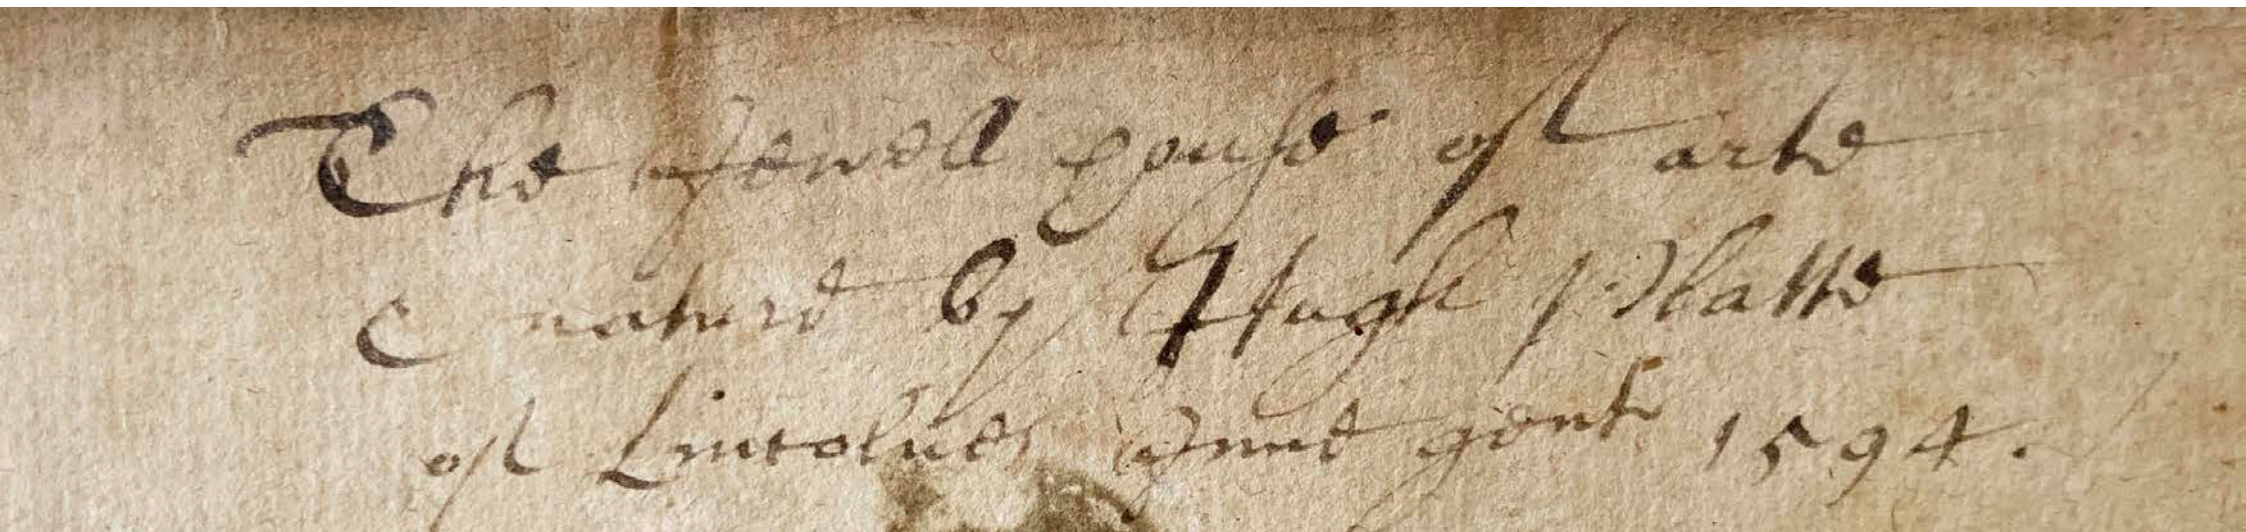 The Jewell house of arte
& nature by Hugh Platte
of Lincolnes Inne gent 1594.